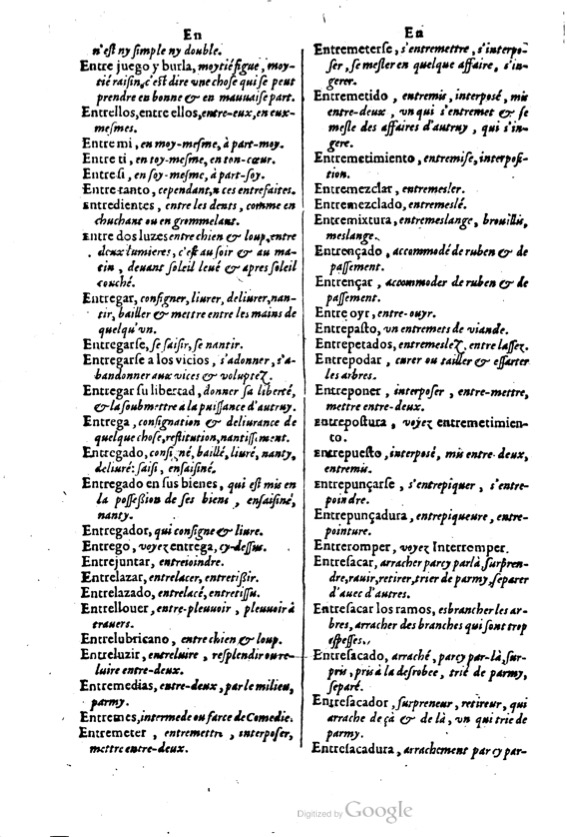 En
n'eſt ny ſimple ny double.
Entre juego y burla, moytié figue, moy-
tié raiſin, c'eſt dire vne choſe qui ſe peut
prendre en bonne & en mauuaiſe part.
Entrellos, entre ellos, entre-eux, en eux-
meſmes.
Entre mi, en moy-meſme, à part-moy.
Entre ti, en toy-meſme, en ton-cœur.
Entre ſi, en ſoy-meſme, à part-ſoy.
Entre tanto, cependant, n ces entrefaites.
Entredientes, entre les dents, comme en
chuchant ou en grommelant.
Entre dos luzes entre chien & loup, entre
deux lumieres, c'eſt au ſoir & au ma-
tin, deuant ſoleil leué & apres ſoleil
couché.
Entregar, conſigner, liurer, deliurer, nan-
tir, bailler & mettre entre les mains de
quelqu'vn.
Entregarſe, ſe ſaiſir, ſe nantir.
Entregarſe a los vicios, s'adonner, s'a-
bandonner aux vices & voluptez.
Entregar ſu libertad, donner ſa liberté,
& la ſoubmettre a la puiſſance d'autruy.
Entrega, conſignation & deliurance de
quelque choſe, reſtitution, nantiſſement.
Entregado, conſigné, baillé, liuré, nanty,
deliuré: ſaiſi, enſaiſiné.
Entregado en ſus bienes, qui eſt mis en
la poſſeßion de ſes biens, enſaiſiné,
nanty.
Entregador, qui conſigne & liure.
Entrego, voyez entrega, cy-deſſus.
Entrejuntar, entreioindre.
Entrelazar, entrelacer, entretißir.
Entrelazado, entrelacé, entretiſſu.
Entrellouer, entre-pleuuoir, pleuuoir à
trauers.
Entrelubricano, entre chien & loup.
Entreluzir, entreluire, reſplendir ou re-
luire entre-deux.
Entremedias, entre-deux, par le milieu,
parmy.
Entremes, intermede ou farce de Comedie.
Entremeter, entremettre, interpoſer,
mettre entre-deux.
En
Entremeterſe, s'entremettre, s'interpo-
ſer, ſe meſler en quelque affaire, s'in-
gerer.
Entremetido, entremis, interpoſé, mis
entre-deux, vn qui s'entremet & ſe
meſle des affaires d'autruy, qui s'in-
gere.
Entremetimiento, entremiſe, interpoſi-
tion.
Entremezclar, entremesler.
Entremezclado, entremeslé.
Entremixtura, entremeslange, brouillis,
meslange.
Entrençado, accommodé de ruben & de
paſſement.
Entrençar, accommoder de ruben & de
paſſement.
Entre oyr, entre-ouyr.
Entrepaſto, vn entremets de viande.
Entrepetados, entremeslez, entre laſſez.
Entrepodar, curer ou tailler & eſſarter
les arbres.
Entreponer, interpoſer, entre-mettre,
mettre entre-deux.
Entrepoſtura, voyez entremetimien-
to.
Entrepueſto, interpoſé, mis entre-deux,
entremis.
Entrepunçarſe, s'entrepiquer, s'entre-
poindre.
Entrepunçadura, entrepiqueure, entre-
pointure.
Entreromper, voyez Interromper.
Entreſacar, arracher parcy parlà, ſurpren-
dre, rauir, retirer, trier de parmy, ſeparer
d'auec d'autres.
Entreſacar los ramos, esbrancher les ar-
bres, arracher des branches qui ſont trop
eſpeſſes.
Entreſacado, arraché, parcy par-là, ſur-
pris, pris à la deſrobee, trié de parmy,
ſeparé.
Entreſacador, ſurpreneur, retireur, qui
arrache de çà & de là, vn qui trie de
parmy.
Entreſacadura, arrachement par cy par-
Digitized by Google